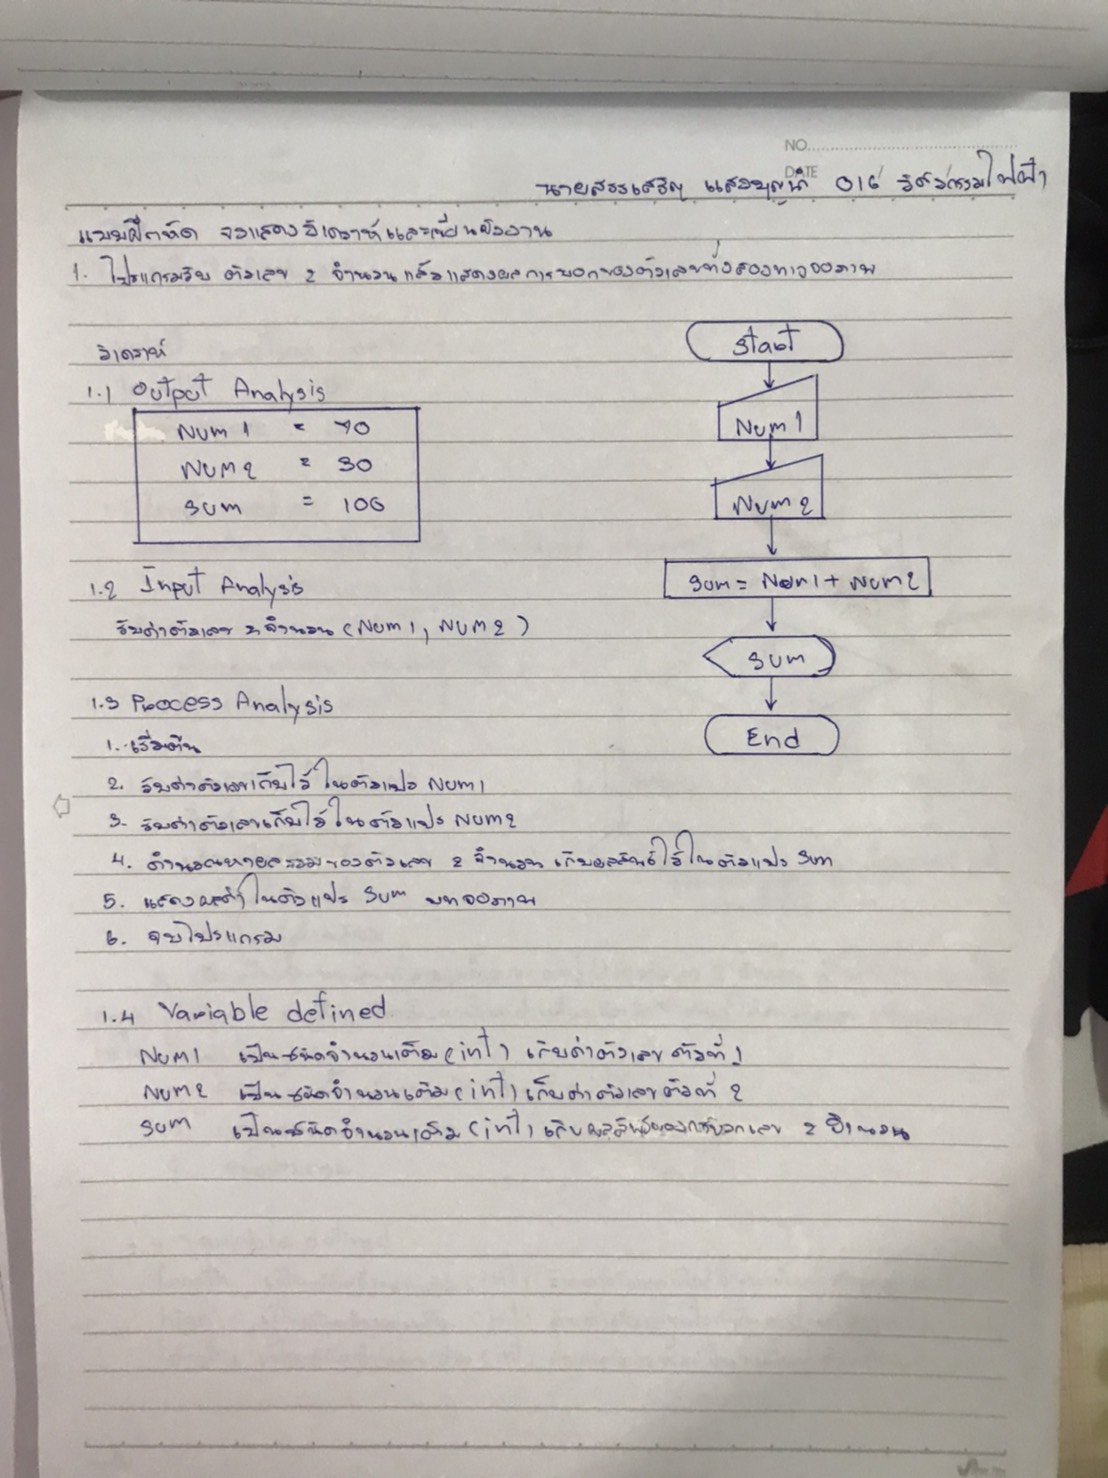 NO.
DATE
นายสรรเสริญ แสงบุญนำ 016 วิศวกรรมไฟฟ้า
แบบฝึกหัด จงแสดงวิเคราะห์และเขียนผังงาน
1. โปรแกรมรับ ตัวเลข 2 จำนวน แล้วแสดงผลการบวกของตัวเลขทั้งสองทางจอภาพ
วิเคราะห์
1.1 Output Analysis
Num 1 = 70
Num 2 = 30
Sum = 100
1.2 Input Analysis
รับค่าตัวเลข 2 จำนวน (Num 1, Num 2)
1.3 Process Analysis
1. เริ่มต้น
2. รับค่าตัวเลขเก็บไว้ในตัวแปร Num 1
3. รับค่าตัวเลขเก็บไว้ในตัวแปร Num 2
4. คำนวณหาผลรวมของตัวเลข 2 จำนวน เก็บผลลัพธ์ไว้ในตัวแปร Sum
5. แสดงผลค่าในตัวแปร Sum บนจอภาพ
6. จบโปรแกรม
1.4 Variable defined
Num 1 เป็นชนิดจำนวนเต็ม (int) เก็บค่าตัวเลข ตัวที่ 1
Num 2 เป็นชนิดจำนวนเต็ม (int) เก็บค่าตัวเลข ตัวที่ 2
Sum เป็นชนิดจำนวนเต็ม (int) เก็บผลลัพธ์ของการบวกเลข 2 จำนวน
Start
Num 1
Num 2
Sum = Num 1 + Num 2
Sum
End